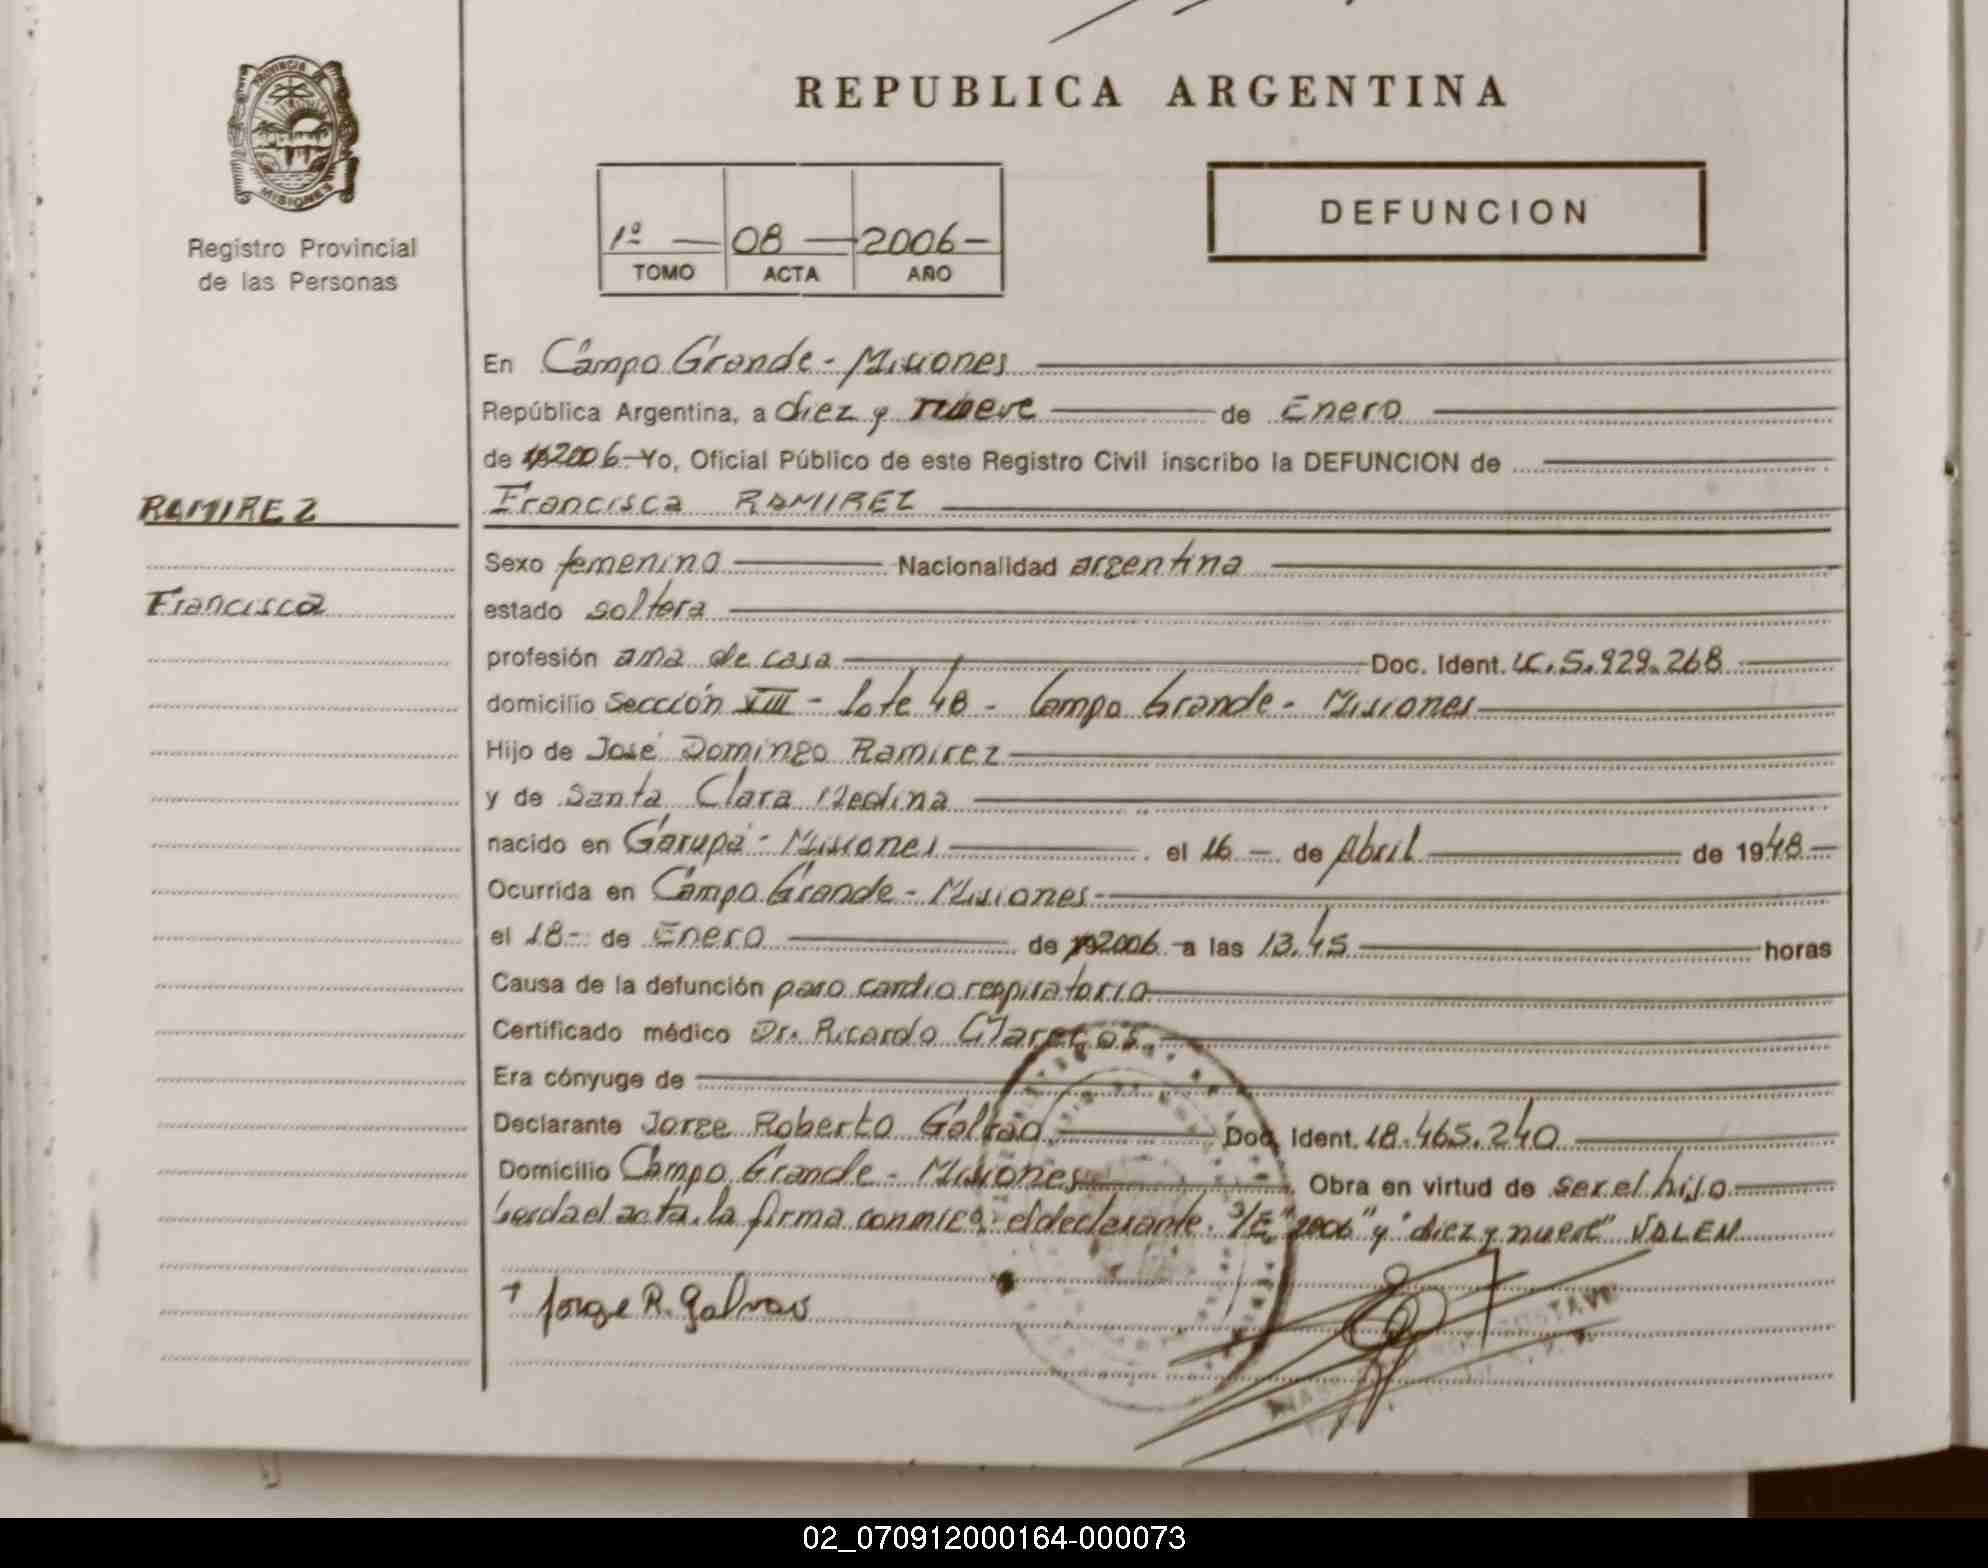 PROVINCIA
MISIONES
Registro Provincial
de las Personas
REPUBLICA ARGENTINA
1º — 08 — 2006 –
TOMO ACTA AÑO
DEFUNCION
En Campo Grande - Misiones
República Argentina, a diez y nueve de Enero
de 2006 - Yo, Oficial Público de este Registro Civil inscribo la DEFUNCION de
RAMIREZ
Francisca RAMIREZ
Sexo femenino Nacionalidad argentina
Francisca
estado soltera
profesión ama de casa Doc. Ident. LC. 5.929.268
domicilio Sección XIII - Lote 48 - Campo Grande - Misiones
Hijo de José Domingo Ramirez
y de Santa Clara Medina
nacido en Garupá - Misiones el 16 — de Abril de 1948 —
Ocurrida en Campo Grande - Misiones -
el 18 - de Enero de 2006 - a las 13.45 horas
Causa de la defunción paro cardio respiratorio
Certificado médico Dr. Ricardo
Era cónyuge de
Declarante Jorge Roberto Galvao Doc. Ident. 18.465.240
Domicilio Campo Grande - Misiones Obra en virtud de ser el hijo
el acta, la firma conmigo: el declarante. S/E "2006" y "diez y nueve" VALEN
† Jorge R. Galvao
02_070912000164-000073